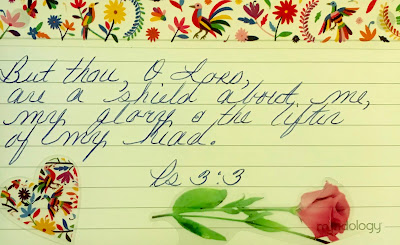 But thou, O Lord,
are a shield about me,
my glory & the lifter
of my head.
Ps 3:3